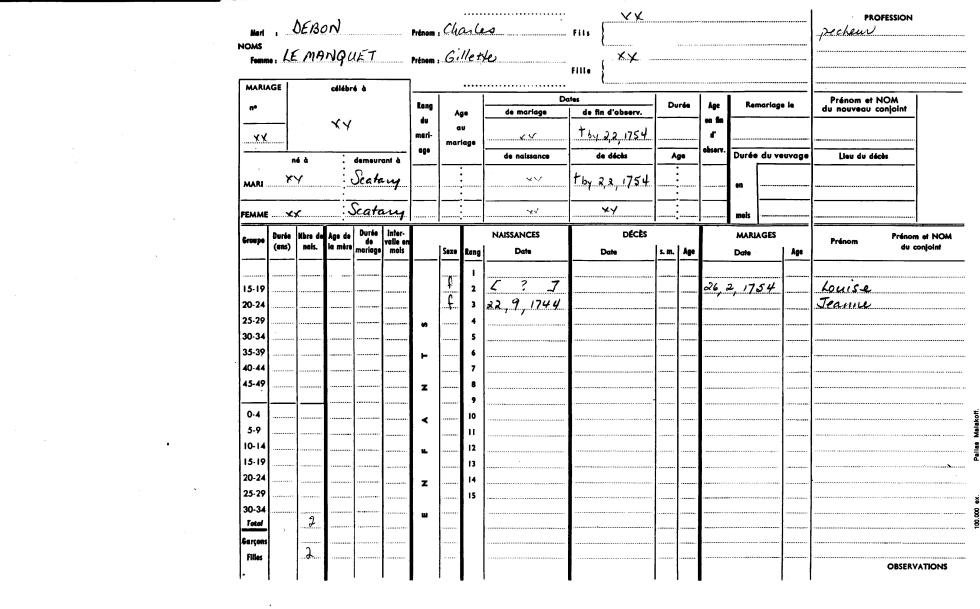 xx
Mari : DEBON Prénom : Charles Fils { PROFESSION
NOMS pecheur
Femme : LE MANQUET Prénom : Gillette Fille { xx
MARIAGE célébré à Rang du mariage Age au mariage Dates Durée Age en fin d'observ. Remariage le Prénom et NOM du nouveau conjoint
n° de mariage de fin d'observ.
xx xy xx † by 2,2,1754
né à demeurant à de naissance de décès Age Durée du veuvage Lieu du décès
MARI xy Scatary xx † by 2,2,1754 en
FEMME xx Scatary xx xy mois
Groupe Durée (ans) Nbre de nais. Age de la mère Durée de mariage Intervalle en mois ENFANTS Sexe Rang NAISSANCES Date DÉCÈS Date s. m. Age MARIAGES Date Age Prénom Prénom et NOM du conjoint
1
15-19 f 2 [ ? ] 26,2,1754 Louise
20-24 f 3 22,9,1744 Jeanne
25-29 4
30-34 5
35-39 6
40-44 7
45-49 8
9
0-4 10
5-9 11
10-14 12
15-19 13
20-24 14
25-29 15
30-34
Total 2
Garçons
Filles 2
OBSERVATIONS
100.000 ex. Pallas Malakoff.